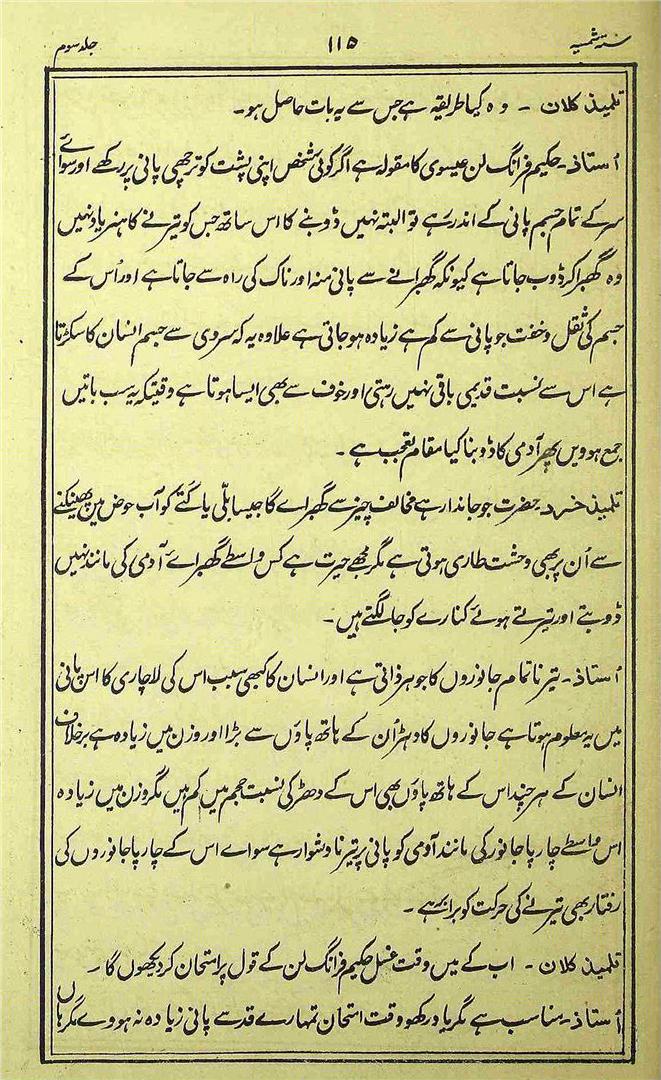 ستہ شمسیہ ۱۱۵ جلد سوم
تلمیذ کلان - وہ کیا طریقہ ہے جس سے یہ بات حاصل ہو۔
اُستاذ - حکیم فرانگ لن عیسوی کا مقولہ ہے اگر کوئی شخص اپنی پشت کو ترچھی پانی پر رکھے اور سوائے
سر کے تمام جسم پانی کے اندر رہے تو البتہ نہیں ڈوبنے کا اس ساتھ جس کو تیرنے کا ہنر یاد نہیں
وہ گھبرا کر ڈوب جاتا ہے کیونکہ گھبرانے سے پانی منہ اور ناک کی راہ سے جاتا ہے اور اُس کے
جسم کی ثقل و خفت جو پانی سے کم ہے زیادہ ہو جاتی ہے علاوہ یہ کہ سردی سے جسم انسان کا سکڑتا
ہے اس سے نسبت قدیمی باقی نہیں رہتی اور خوف سے بھی ایسا ہوتا ہے وقتیکہ یہ سب باتیں
جمع ہوویں پھر آدمی کا ڈوبنا کیا مقام تعجب ہے ۔
تلمیذ خرد - حضرت جو جاندار ہے مخالف چیز سے گھبراے گا جیسا بلّی یا کُتّے کو آب حوض میں پھینکنے
سے اُن پر بھی وحشت طاری ہوتی ہے مگر مجھے حیرت ہے کس واسطے گھبراے آدمی کی مانند نہیں
ڈوبتے اور تیرتے ہوئے کنارے کو جا لگتے ہیں ۔
اُستاذ - تیرنا تمام جانوروں کا جوہر ذاتی ہے اور انسان کا کبھی سبب اس کی لاچاری کا اس پانی
میں یہ معلوم ہوتا ہے جانوروں کا دہڑ اُن کے ہاتھ پاؤں سے بڑا اور وزن میں زیادہ ہے برخلاف
انسان کے ہر چند اس کے ہاتھ پاؤں بھی اس کے دھڑ کی نسبت حجم میں کم ہیں مگر وزن میں زیادہ
اس واسطے چارپا جانور کی مانند آدمی کو پانی پر تیرنا دشوار ہے سواے اس کے چارپا جانوروں کی
رفتار بھی تیرنے کی حرکت کو برابر ہے ۔
تلمیذ کلان - اب کے میں وقت غسل حکیم فرانگ لن کے قول پر امتحان کر دیکھوں گا ۔
اُستاذ - مناسب ہے مگر یاد رکھو وقت امتحان تمہارے قد سے پانی زیادہ نہ ہووے مگر ہاں